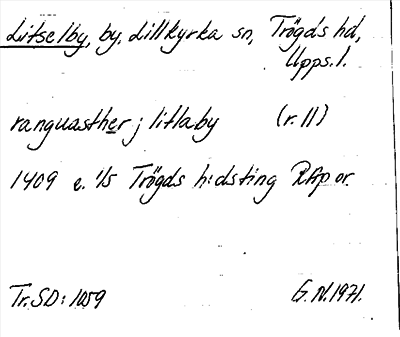 Litselby, by, Lillkyrka sn, Trögds hd,
Upps.l.
ranguasther j litlaby (r. 11)
1409 e. 1/5 Trögds h:dsting RAp or.
Tr. SD: 1059 G.N. 1971.